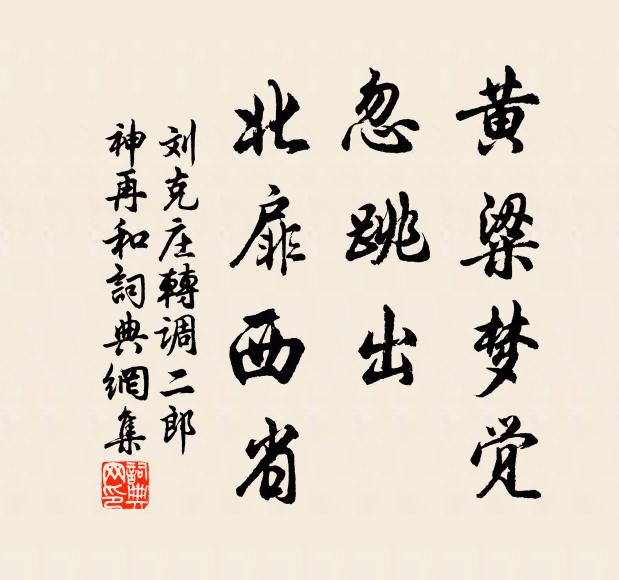 黄粱梦觉
忽跳出
北扉西省
刘克庄轉调二郎
神再和詞典網集
詞典网印